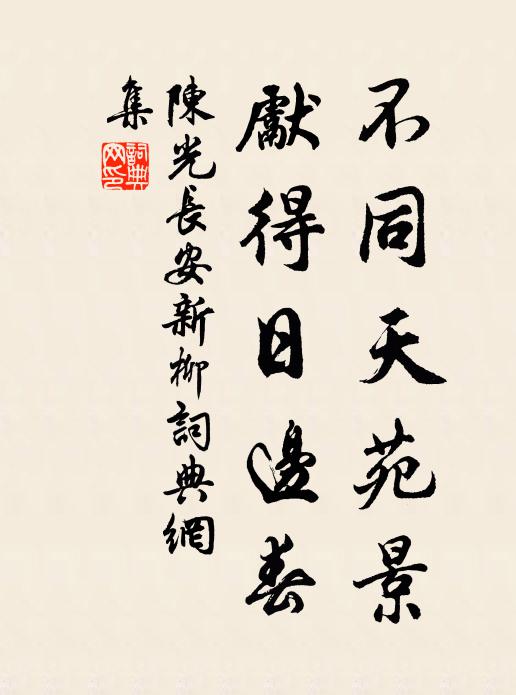 不同天苑景
獻得日邊春
陳光長安新柳詞典網
集
詞典網印